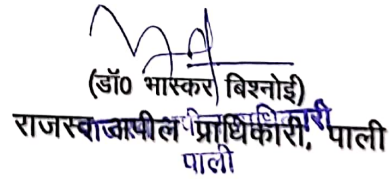 (डॉ0 भास्कर बिश्नोई)
राजस्व अपील प्राधिकारी, पाली
पाली